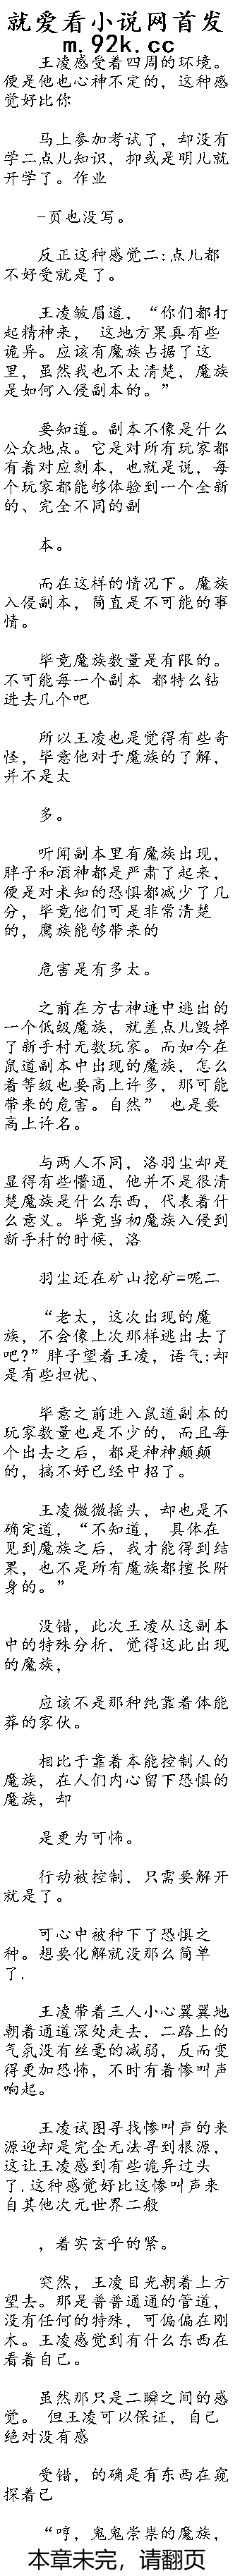 就爱看小说网首发
m.92k.cc
王凌感受着四周的环境。
便是他也心神不定的，这种感
觉好比你
马上参加考试了，却没有
学二点儿知识，抑或是明儿就
开学了。作业
-页也没写。
反正这种感觉二:点儿都
不好受就是了。
王凌皱眉道，“你们都打
起精神来， 这地方果真有些
诡异。应该有魔族占据了这
里，虽然我也不太清楚，魔族
是如何入侵副本的。”
要知道。副本不像是什么
公众地点。它是对所有玩家都
有着对应刻本，也就是说，每
个玩家都能够体验到一个全新
的、完全不同的副
本。
而在这样的情况下。魔族
入侵副本，简直是不可能的事
情。
毕竟魔族数量是有限的。
不可能每一个副本 都特么钻
进去几个吧
所以王凌也是觉得有些奇
怪，毕意他对于魔族的了解，
并不是太
多。
听闻副本里有魔族出现，
胖子和酒神都是严肃了起来，
便是对未知的恐惧都减少了几
分，毕竟他们可是非常清楚
的，鹰族能够带来的
危害是有多太。
之前在方古神迹中逃出的
一个低级魔族，就差点儿毁掉
了新手村无数玩家。而如今在
鼠道副本中出现的魔族，怎么
着等级也要高上许多，那可能
带来的危害。自然” 也是要
高上许名。
与两人不同，洛羽尘却是
显得有些懵通，他并不是很清
楚魔族是什么东西，代表着什
么意义。毕竟当初魔族入侵到
新手村的时候，洛
羽尘还在矿山挖矿=呢二
“老太，这次出现的魔
族，不会像上次那样逃出去了
吧?”胖子望着王凌，语气:却
是有些担忧、
毕意之前进入鼠道副本的
玩家数量也是不少的，而且每
个出去之后，都是神神颠颠
的，搞不好已经中招了。
王凌微微摇头，却也是不
确定道，“不知道， 具体在
见到魔族之后，我才能得到结
果，也不是所有魔族都擅长附
身的。”
没错，此次王凌从这副本
中的特殊分析，觉得这此出现
的魔族，
应该不是那种纯靠着体能
莽的家伙。
相比于靠着本能控制人的
魔族，在人们内心留下恐惧的
魔族，却
是更为可怖。
行动被控制，只需要解开
就是了。
可心中被种下了恐惧之
种。想要化解就没那么简单
了.
王凌带着三人小心翼翼地
朝着通道深处走去，二路上的
气氛没有丝毫的减弱，反而变
得更加恐怖，不时有着惨叫声
响起。
王凌试图寻找惨叫声的来
源迎却是完全无法寻到根源，
这让王凌感到有些诡异过头
了.这种感觉好比这惨叫声来
自其他次元世界二般
，着实玄乎的紧。
突然，王凌目光朝着上方
望去。那是普普通通的管道，
没有任何的特殊，可偏偏在刚
木。王凌感觉到有什么东西在
看着自己。
虽然那只是二瞬之间的感
觉。 但王凌可以保证，自己
绝对没有感
受错，的确是有东西在窥
探着己
“哼，鬼鬼祟祟的魔族，
本章未完，请翻页